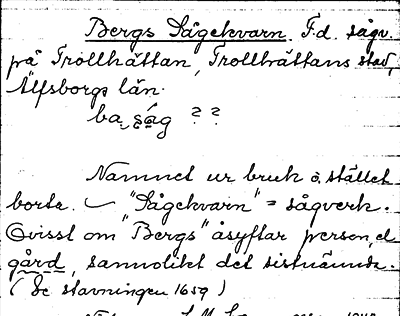 Bergs Sågekvarn. F.d. sågv.
på Trollhättan, Trollhättans stad,
Älfsborgs län.
ba, såg ? ?
Namnet ur bruk o. stället
borta. — "Sågekvarn" = sågverk.
Ovisst om "Bergs" åsyftar person, el
gård, sannolikt det sistnämnda.
(Se stavningen 1659)